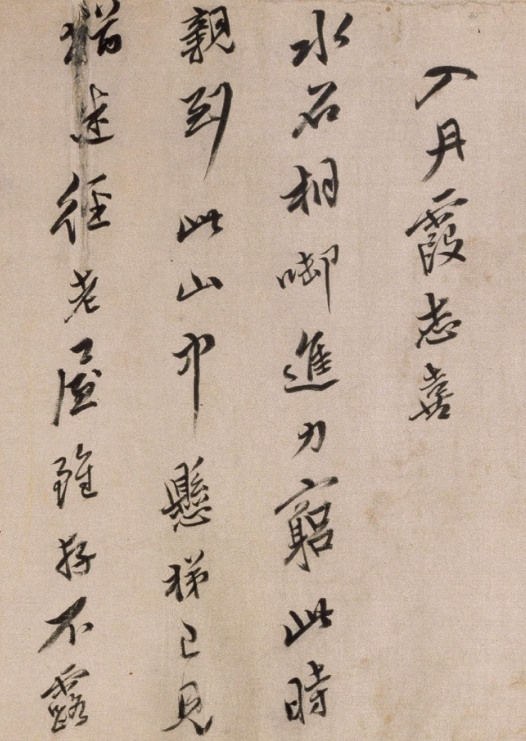 入丹霞志喜
水石相㘅進力窮此時
親到此山中懸梯已見
猶迷徑老屋雖存不露